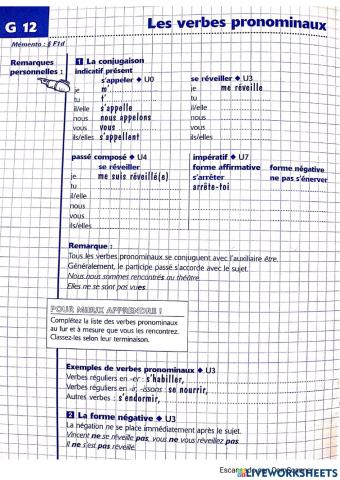 G 12
Les verbes pronominaux
Mémento : § F1d
Remarques personnelles :
1 La conjugaison
indicatif présent
s'appeler ◆ U0
se réveiller ◆ U3
je m'
me réveille
tu t'
tu
il/elle s'appelle
il/elle
nous nous appelons
nous
vous vous
vous
ils/elles s'appellent
ils/elles
passé composé ◆ U4
impératif ◆ U7
se réveiller
forme affirmative
forme négative
je me suis réveillé(e)
s'arrêter
ne pas s'énerver
tu
arrête-toi
il/elle
nous
vous
ils/elles
Remarque :
Tous les verbes pronominaux se conjuguent avec l'auxiliaire être.
Généralement, le participe passé s'accorde avec le sujet.
Nous nous sommes rencontrés au théâtre.
Elles ne se sont pas vues.
POUR MIEUX APPRENDRE !
Complétez la liste des verbes pronominaux
au fur et à mesure que vous les rencontrez.
Classez-les selon leur terminaison.
Exemples de verbes pronominaux ◆ U3
Verbes réguliers en -er : s'habiller,
Verbes réguliers en -ir, -issons : se nourrir,
Autres verbes : s'endormir,
2 La forme négative ◆ U3
La négation ne se place immédiatement après le sujet.
Vincent ne se réveille pas, vous ne vous réveillez pas.
Il ne s'est pas réveillé.
LIVEWORKSHEETS